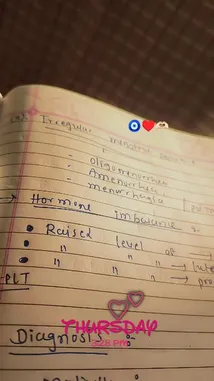 Irregular menstrual
- oligomenorrhea
- Amenorrhea
- menorrhagia
→ Hormone imbalance
• Raised level of →
• " " " → lute
• " " " → pro
PLT
THURSDAY
3:28 PM
Diagnosis :